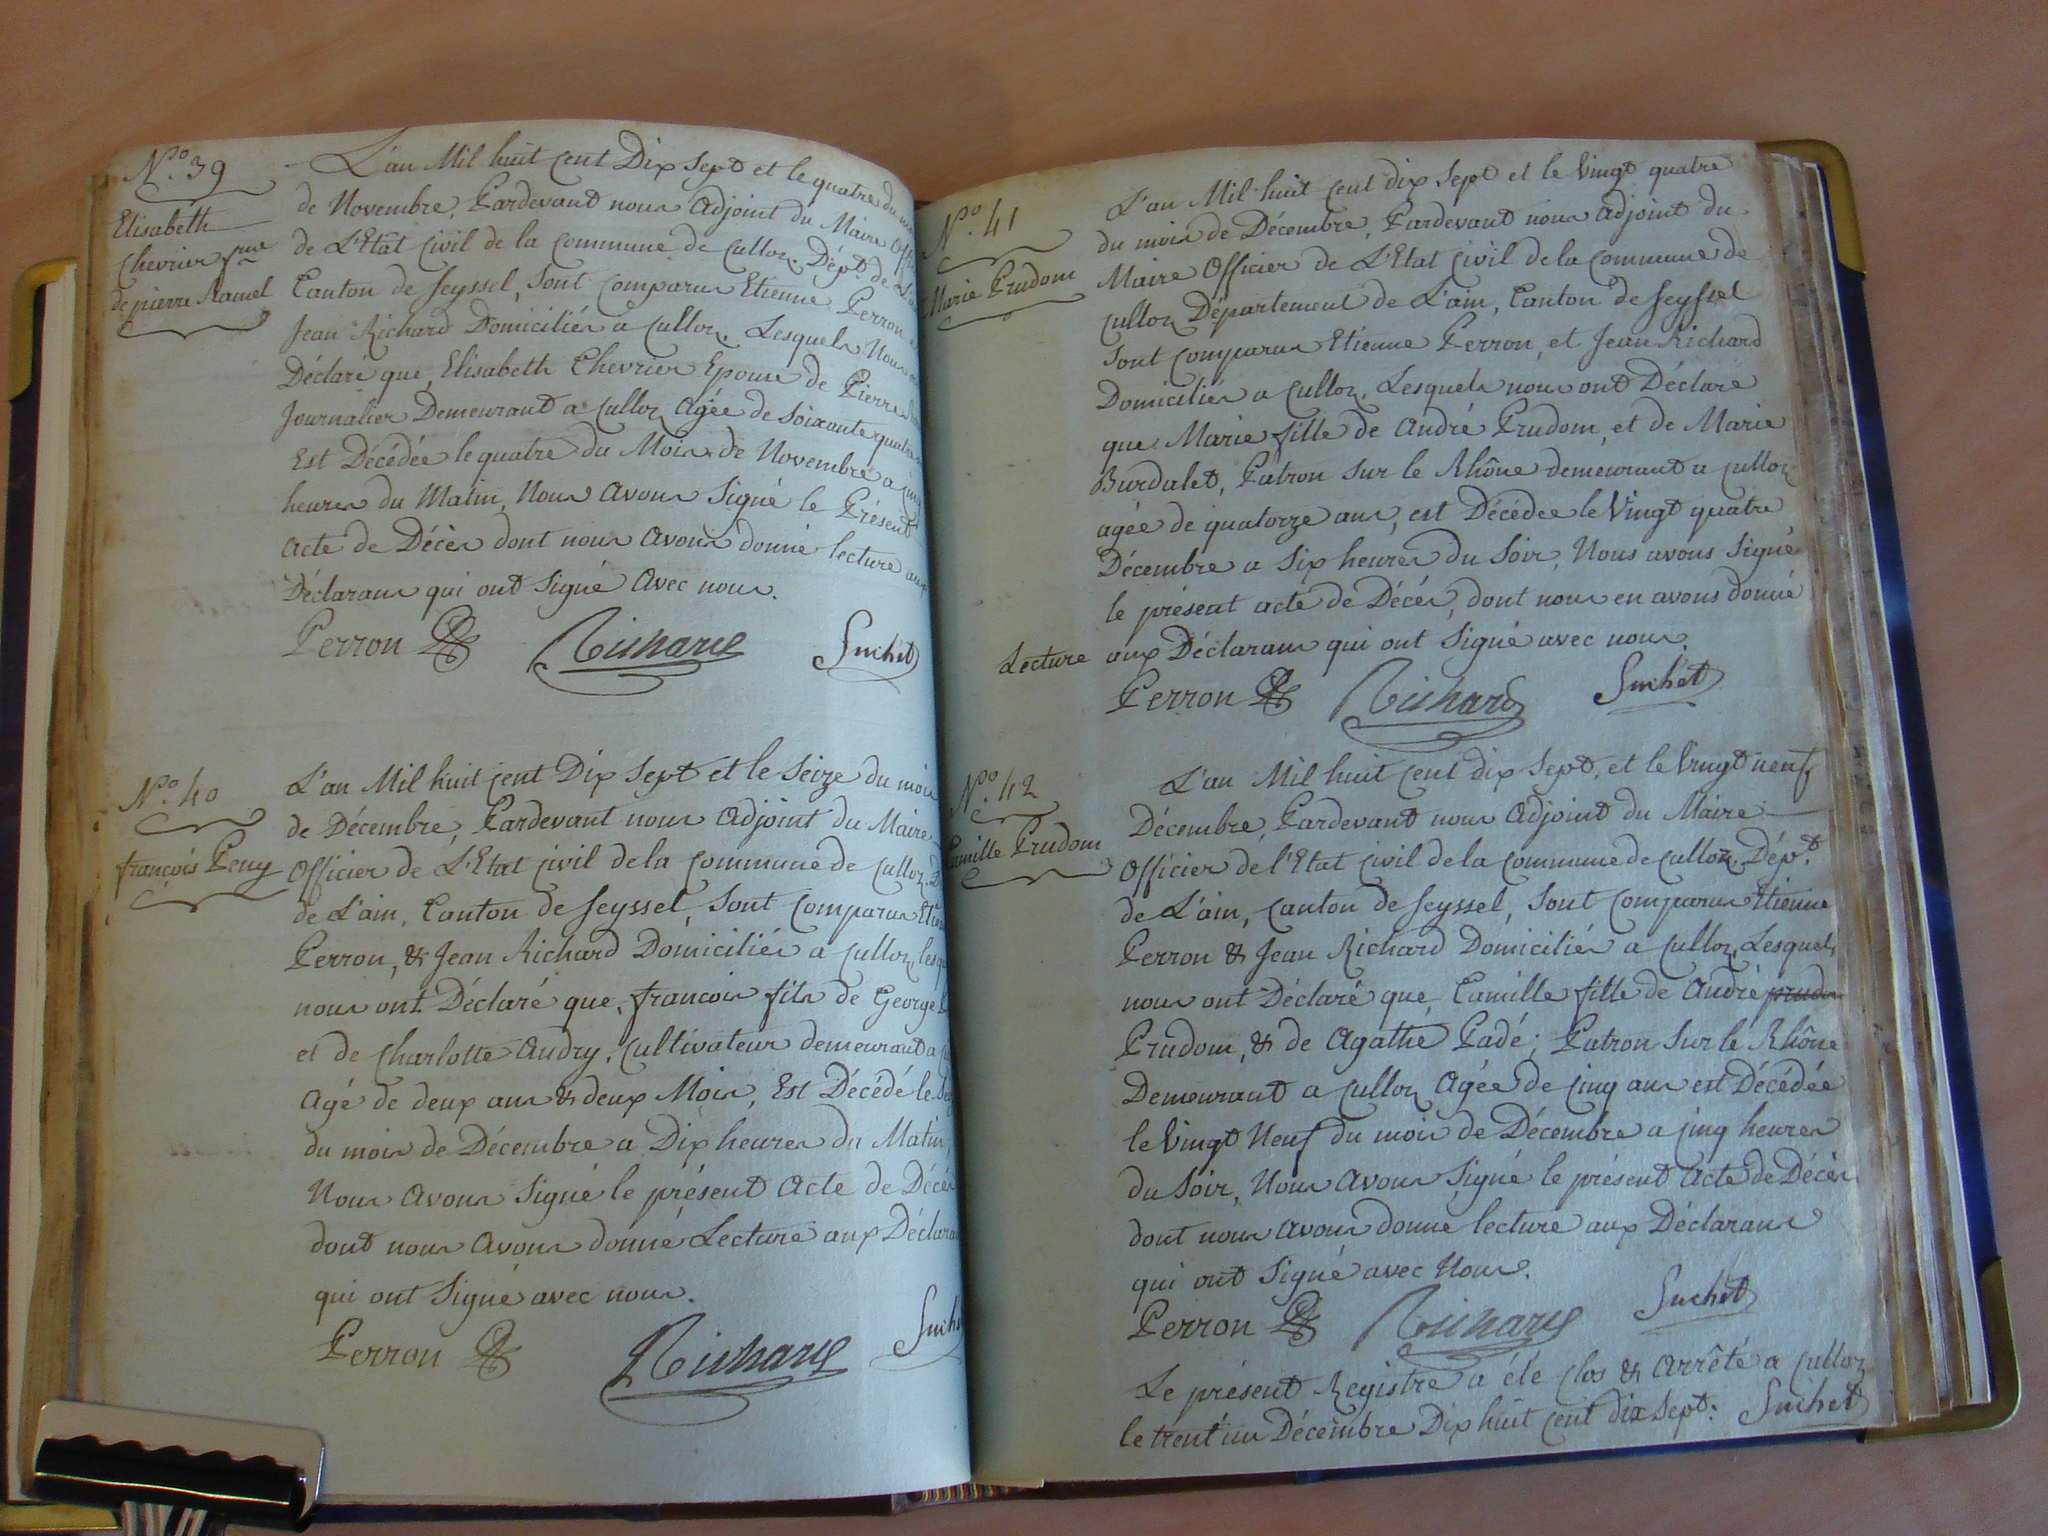 N.o 39
Elisabeth
Chevrier fme
de pierre Ramel
L'an Mil huit cent Dix Sept et le quatre du
de Novembre, Pardevant nous Adjoint du Maire
de L'Etat Civil de la Commune de Culloz, Dépt. de
Canton de Seyssel, Sont Comparus Etienne Perron
Jean Richard Domiciliés a Culloz, Lesquels Nous
Déclaré que, Elisabeth Chevrier Epouse de Pierre
Journalier Demeurant a Culloz Agée de Soixante quatre
Est Décédée le quatre du Mois de Novembre a cinq
heures du Matin, Nous Avons Signé le Présent
Acte de Décès dont nous Avons donné lecture aux
Déclarans qui ont Signé Avec nous.
Perron Richard Suchet
N.o 40
françois Peny
L'an Mil huit cent Dix Sept et le Seize du mois
de Décembre, Pardevant nous Adjoint du Maire
Officier de L'Etat Civil de la Commune de Culloz
de L'ain, Canton de Seyssel, Sont Comparus
Perron, & Jean Richard Domiciliés a Culloz,
nous ont Déclaré que, francois fils de George
et de Charlotte Andry, Cultivateur demeurant a
Agé de deux ans & deux Mois, Est Décédé le
du mois de Décembre a Dix heures du Matin,
Nous Avons Signé le présent Acte de Décès
dont nous Avons donné Lecture aux
qui ont Signé avec nous.
Perron Richard
N.o 41
Marie Prudom
L'an Mil huit cent dix Sept et le Vingt quatre
du mois de Décembre, Pardevant nous Adjoint du
Maire Officier de L'Etat Civil de la Commune de
Culloz Département de L'ain, Canton de Seyssel
Sont Comparus Etienne Perron, et Jean Richard
Domiciliés a Culloz, Lesquels nous ont Déclaré
que Marie fille de André Prudom, et de Marie
Burdalet, Patron Sur le Rhône demeurant a Culloz
agée de quatorze ans, est Décédée le Vingt quatre
Décembre a Six heures du Soir, Nous avons Signé
le présent acte de Décès, dont nous en avons donné
Lecture aux Déclarans qui ont Signé avec nous.
Perron Richard Suchet
N.o 42
Camille Prudom
L'an Mil huit cent dix Sept, et le Vingt neuf
Décembre, Pardevant nous Adjoint du Maire
Officier de l'Etat Civil de la Commune de Culloz, Dépt.
de L'ain, Canton de Seyssel, Sont Comparus Etienne
Perron & Jean Richard Domiciliés a Culloz, Lesquels
nous ont Déclaré que, Camille fille de André prudom
Prudom, & de Agathe Padé; Patron Sur le Rhône
Demeurant a Culloz Agée de Cinq ans est Décédée
le Vingt Neuf du mois de Décembre a Cinq heures
du Soir, Nous Avons Signé le présent Acte de Décès
dont nous avons donné lecture aux Déclarans
qui ont Signé avec Nous.
Perron Richard Suchet
Le présent Registre a été Clos & Arrêté a Culloz
le trent'un Décembre Dix huit cent dix Sept. Suchet